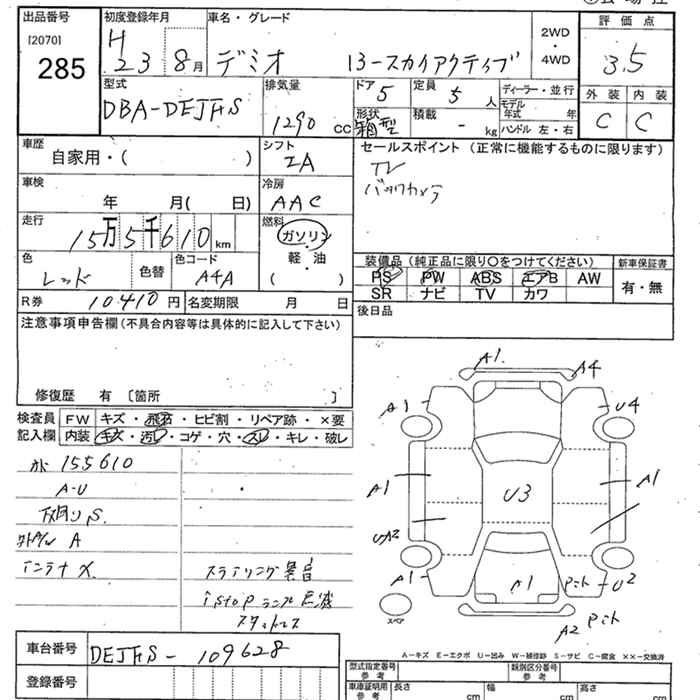 出品番号
[2070]
285
初度登録年月
H
23 8月
車名・グレード
デミオ 13-スカイアクティブ
2WD
・
4WD
評価点
3.5
外装 内装
C C
型式
DBA-DEJFS
排気量
1290 cc
ドア
5
定員
5 人
形状
箱型
積載
- kg
ディーラー・並行
モデル
年式 年
ハンドル 左・右
車歴
自家用・( )
シフト
IA
セールスポイント(正常に機能するものに限ります)
TV
バックカメラ
車検
年 月( 日)
冷房
AAC
走行
15万5千610km
燃料
ガソリン
・
軽・油
( )
色
レッド
色替
色コード
A4A
装備品(純正品に限り○をつけてください)
PS PW ABS エアB AW
SR ナビ TV カワ
新車保証書
有・無
R券 10410円 名変期限 月 日
後日品
注意事項申告欄(不具合内容等は具体的に記入して下さい)
修復歴 有 〔箇所 〕
検査員
記入欄
FW キズ・飛石・ヒビ割・リペア跡・×要
内装 キズ・汚レ・コゲ・穴・スレ・キレ・破レ
155610
A-U
下廻りS
A
アンテナ×
ステアリング異音
istopランプ点滅
スタッドレス
A1
A4
A1
U4
A1
U3
A1
UA2
A1
A1
U2
A2
スペア
A-キズ E-エクボ U-凹み W-補修跡 S-サビ C-腐食 ××-交換済
車台番号
DEJFS-109628
登録番号
型式指定番号
参考
類別区分番号
参考
車庫証明用
参考
長さ cm
幅 cm
高さ cm